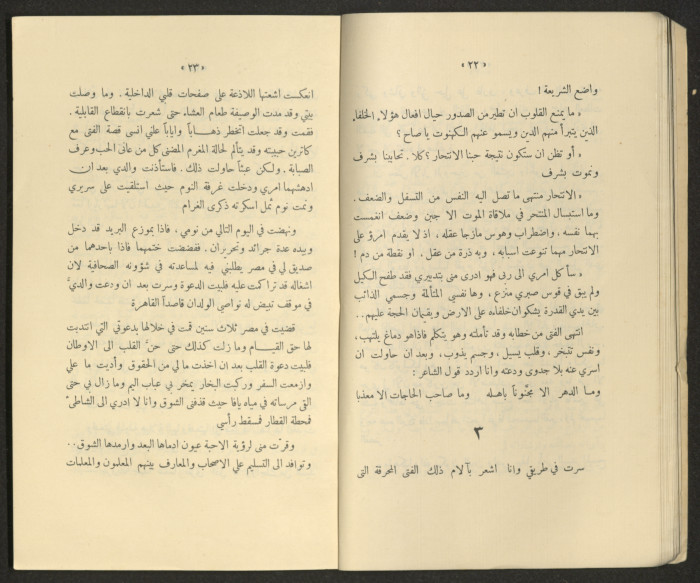 «٢٢»
واضع الشريعة !
« ما يمنع القلوب ان تطير من الصدور حيال افعال هؤلاء الخلفاء
الذين يتبرأ منهم الدين ويسمو عنهم الكهنوت يا صاح ؟
« أو تظن ان ستكون نتيجة حبنا الانتحار ؟ كلا . تحاببنا بشرف
ونموت بشرف
« الانتحار منتهى ما تصل اليه النفس من التسفل والضعف .
وما استبسال المنتحر في ملاقاة الموت الا جبن وضعف انغمست
بهما نفسه ، واضطراب وهوس مازجا عقله ، اذ لا يقدم امرؤ على
الانتحار مهما تنوعت اسبابه ، وبه ذرة من عقل . او نقطة من دم !
« سأكل امري الى رق فهو ادرى منى بتدبيري فقد طفح الكيل
ولم يبق في قوس صبري منزع ، وها نفسي المتألمة وجسمي الذائب
بين يدي القدرة يشكوان خلفاءه على الارض ويقيمان الحجة عليهم ..
انتهى الفتى من خطابه وقد تأملته وهو يتكلم فاذا هو دماغ يلتهب ،
ونفس تتبخر ، وقلب يسيل ، وجسم يذوب ، وبعد ان حاولت ان
اسري عنه بلا جدوى ودعته وانا اردد قول الشاعر :
ومـا الدهر الا مجنّوناً باهـله وما صاحب الحاجات الا معذبا
٣
سرت في طريقي وانا اشعر بآلام ذلك الفتى المحرقة التى
«٢٣»
انعكست اشعتها اللاذعة على صفحات قلبي الداخلية . وما وصلت
بيتي وقد مدت الوصيفة طعام العشاء حتى شعرت بانقطاع القابلية .
فقمت وقد جعلت اتخطر ذهـــاباً واياباً علي انسى قصة الفتى مع
كاترين حبيبته وقد يتألم لحالة المغرم المضنى كل من عانى الحب وعرف
الصبابة . ولكن عبثاً حاولت ذلك . فاستأذنت والدي بعد ان
ادهشهما امري ودخلت غرفة النوم حيث استلقيت على سريري
ونمت نوم ثمل اسكرته ذكرى الغرام
ونهضت في اليوم التالي من نومي . فاذا بموزع البريد قد دخل
وبيده عدة جرائد وتحريران . ففضضت ختمهما فاذا باحدهما من
صديق لي في مصر يطلبني فيه لمساعدته في شؤونه الصحافية لان
اشغاله قد تراكمت عليه فلبيت الدعوة وسرت بعد ان ودعت والديَّ
في موقف تبيض له نواصي الولدان قاصداً القاهرة
قضيت في مصر ثلاث سنين قمت في خلالها بدعوتي التي انتدبت
لها حق القيـــام وما زلت كذلك حتى حنَّ القلب الى الاوطان
فلبيت دعوة القلب بعد ان اخذت ما لي من الحقوق وأديت ما علي
وازمعت السفر وركبت البخار يمخر في عباب اليم وما زال في حتى
القى مرساته في مياه يافا حيث قذفنى الشوق وانا لا ادري الى الشاطيء
فمحطة القطار فمسقط رأسي
وقرّت منى لرؤية الاحبة عيون ادماها البعد وارمدها الشوق..
وتوافد الى التسليم علي الاصحاب والمعارف بينهم المعلمون والمعلمات